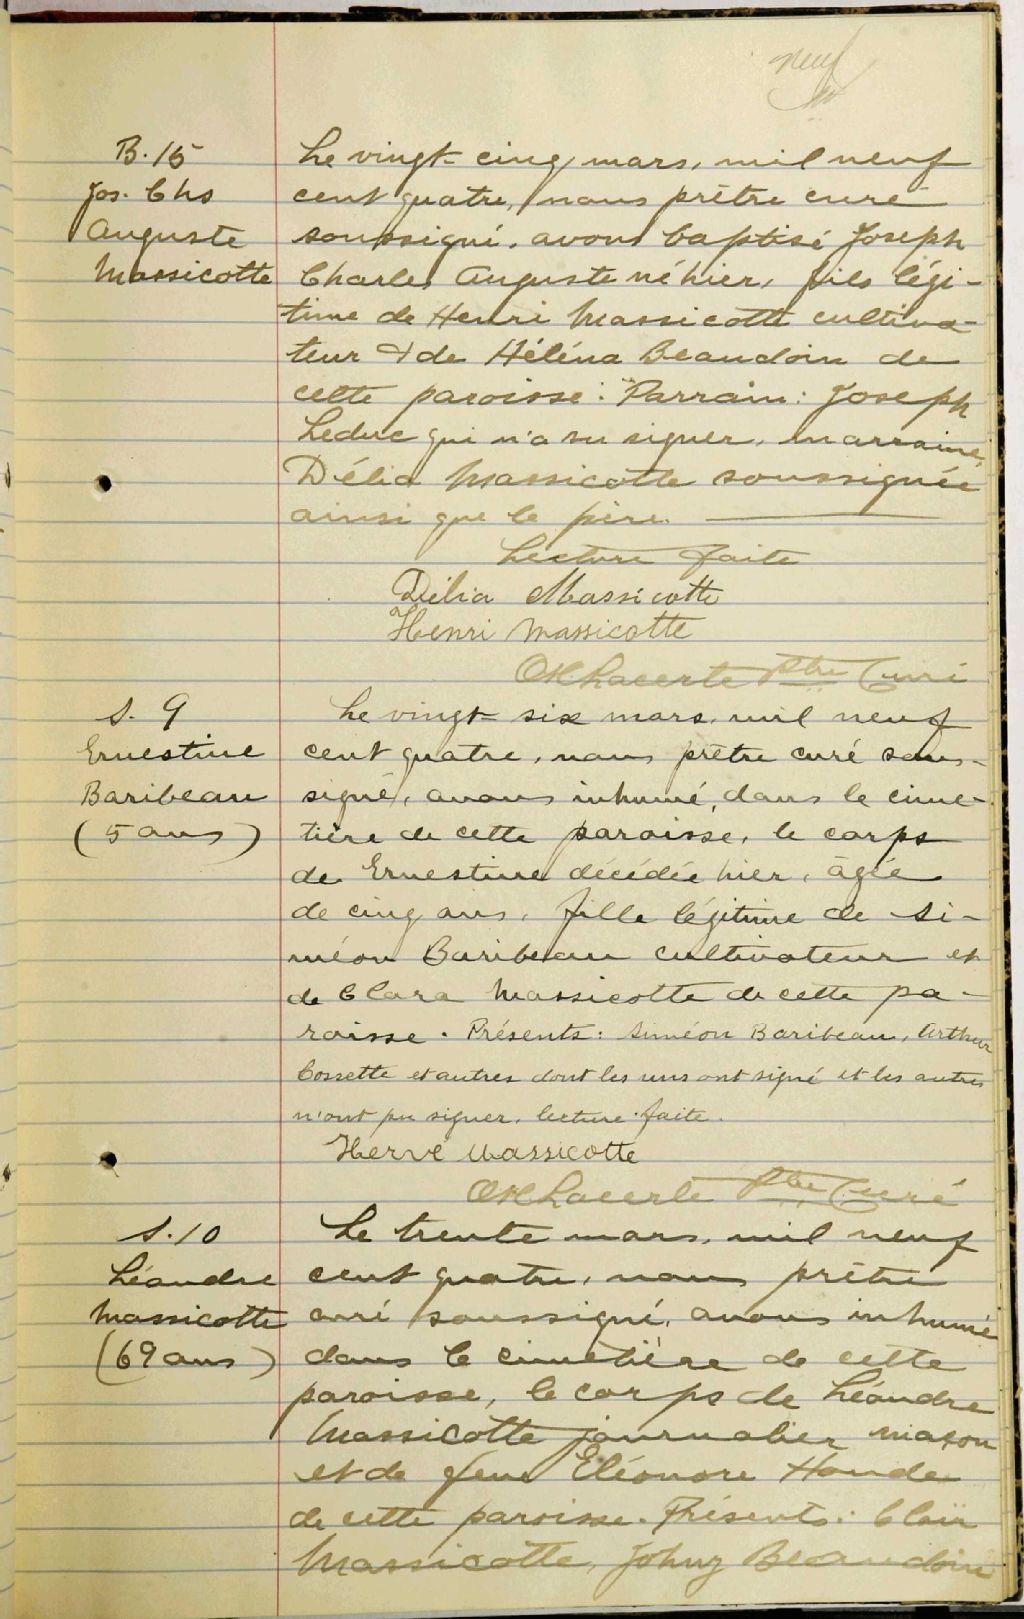 neuf
B. 15
Jos. Chs
Auguste
Massicotte
Le vingt-cinq mars, mil neuf
cent quatre, nous prêtre curé
soussigné, avons baptisé Joseph
Charles Auguste né hier, fils légi-
time de Henri Massicotte cultiva-
teur & de Héléna Beaudoin de
cette paroisse. Parrain: Joseph
Leduc qui n'a su signer, marraine,
Délia Massicotte soussignée
ainsi que le père.
Lecture faite
Délia Massicotte
Henri Massicotte
Lacerte Ptre Curé
S. 9
Ernestine
Baribeau
(5 ans)
Le vingt-six mars, mil neuf
cent quatre, nous prêtre curé sous-
signé, avons inhumé, dans le cime-
tière de cette paroisse, le corps
de Ernestine décédée hier, âgée
de cinq ans, fille légitime de Si-
méon Baribeau cultivateur et
de Clara Massicotte de cette pa-
roisse. Présents: Siméon Baribeau, Arthur
Cossette et autres dont les uns ont signé et les autres
n'ont pu signer, lecture faite.
Hervé Massicotte
Lacerte Ptre Curé
S. 10
Léandre
Massicotte
(69 ans)
Le trente mars, mil neuf
cent quatre, nous prêtre
curé soussigné, avons inhumé
dans le cimetière de cette
paroisse, le corps de Léandre
Massicotte journalier maçon
et de feue Eléonore Houde
de cette paroisse. Présents:
Massicotte, Johny Beaudoin